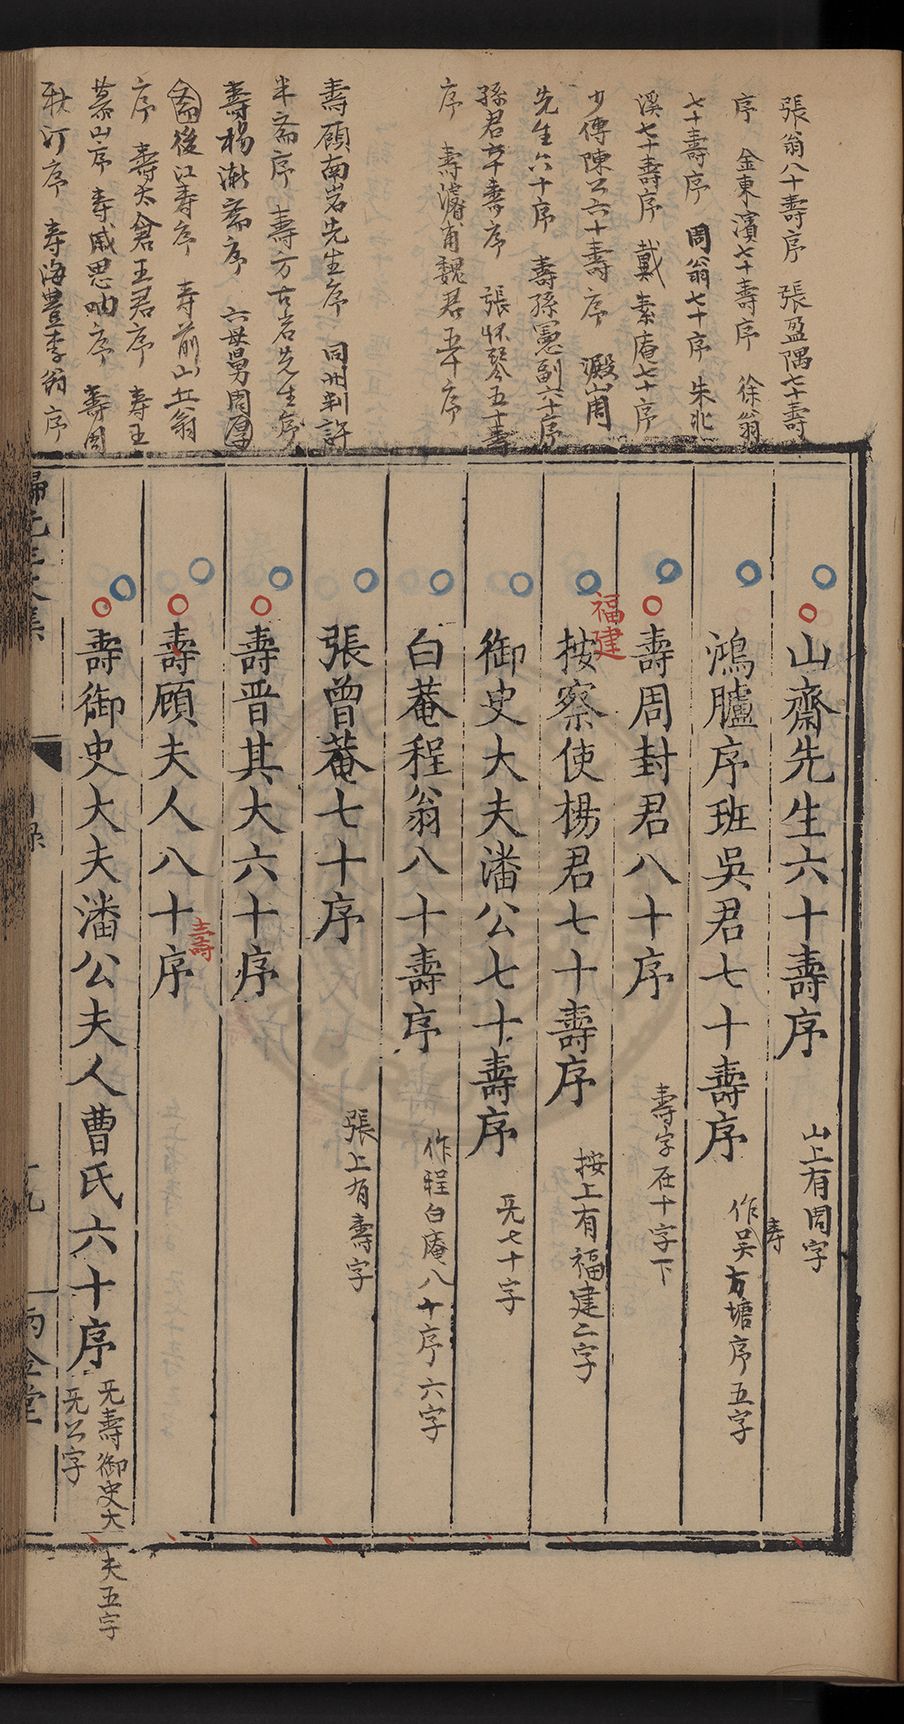 張翁八十壽序 張盈隅七十壽
序 金東濱七十壽序 徐翁
七十壽序 周翁七十序 朱北
溪七十壽序 戴素庵七十序
少傳陳公六十壽序 澱山周
先生六十序 壽孫憲副六十序
孫君六十壽序 張怀琴五十壽
序 壽濬甫魏君五十序
壽顧南岩先生序 同州判許
半齋序 壽方古岩先生序
壽楊漸齋序 六母舅周
後江壽序 壽前山丘翁
序 壽太倉王君序 壽王
山序 壽戚思吶序 壽周
秋汀序 壽海豊李翁序
山齋先生六十壽序 山上有周字
鴻臚序班吳君七十壽序 作吳方塘序五字
壽
壽周封君八十序 壽字在十字下
福建
按察使楊君七十壽序 按上有福建二字
御史大夫潘公七十壽序 旡七十字
白菴程翁八十壽序 作程白庵八十序六字
張曾菴七十序 張上有壽字
壽晋其大六十序
壽顧夫人八十序
壽
壽御史大夫潘公夫人曹氏六十序 旡壽御史大夫五字
旡公字